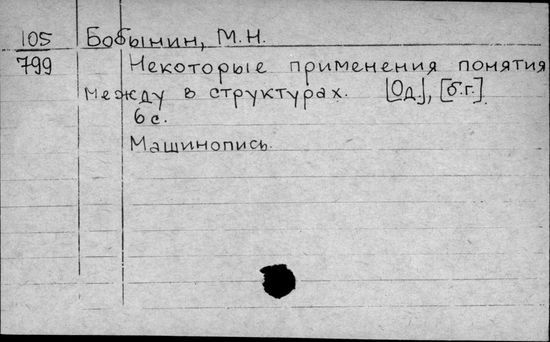 105 Бобынин, М.Н.
799 Некоторые применения понятия
между в структурах. [Од.], [б.г.].
6 с.
Машинопись.